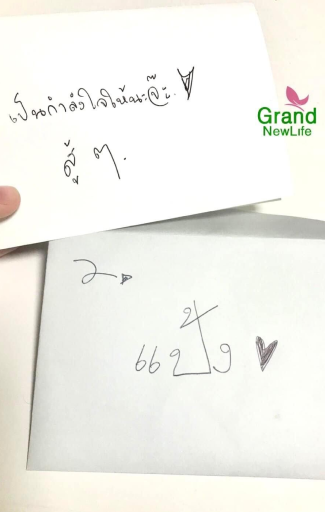 เป็นกำลังใจให้นะจ๊ะ.
สู้ ๆ.
Grand
NewLife